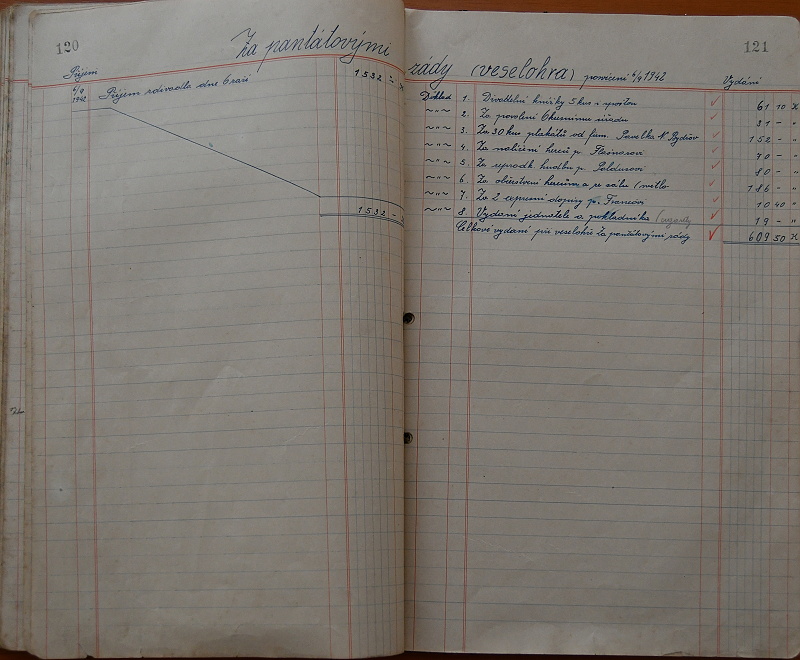 120
Za pantátovými
Příjem
6/9 1942 Příjem z divadla dne 6 září 1532 -
1532 -
121
zády (veselohra) pořízení 6/9 1942
Vydání
Doklad 1. Divadelní knížky 5 kus i s poštou 61 10 K
~"~ 2. Za povolení Okresnímu úřadu 31 - "
~"~ 3. Za 30 kus plakátů od firm. Pavelka N. Bydžov 152 - "
~"~ 4. Za nalíčení herců p. 70 - "
~"~ 5. Za reprodk. hudbu p. 80 - "
~"~ 6. Za občerstvení hercům a ze sálu / světlo 186 - "
~"~ 7. Za 2 expresní dopisy p. Francovi 10 40 "
~"~ 8. Vydání jednatele a pokladníka 19 - "
Celkové vydání při veselohře Za pantátovými zády 609 50 K